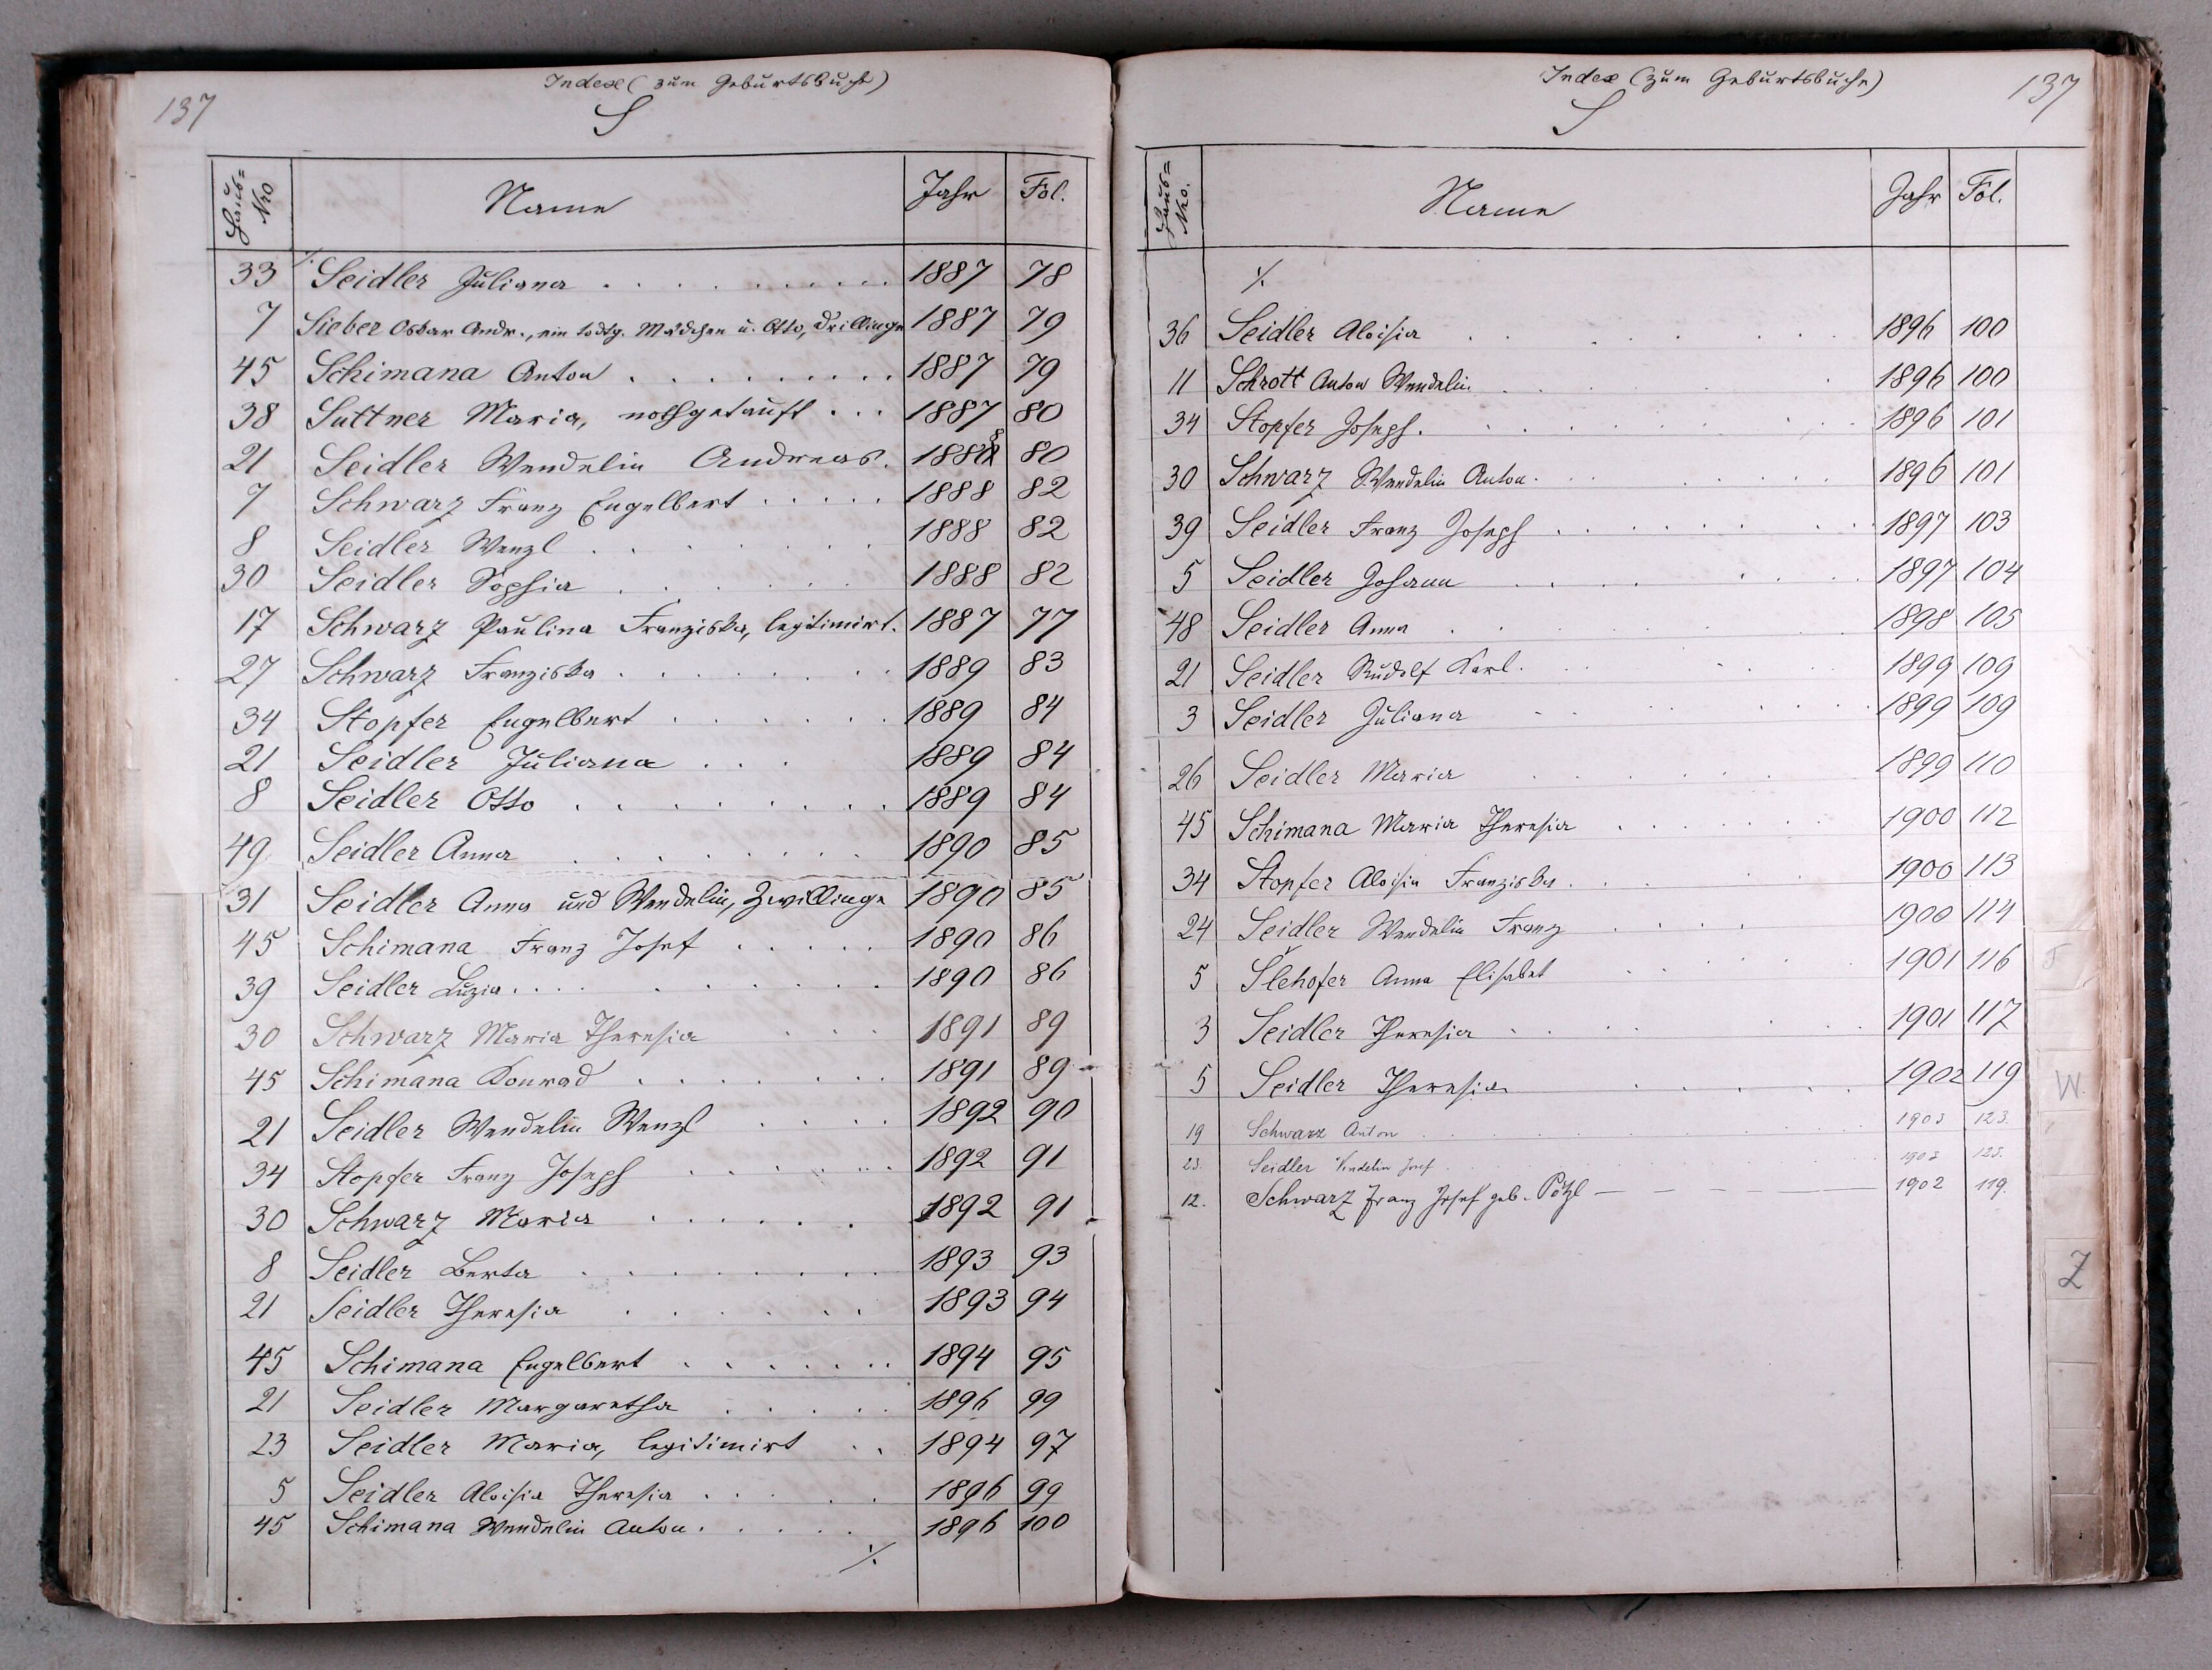 137
Index (zum Geburtsbuche)
S
Haus= Nro Name Jahr Fol.
33 ⁒ Seidler Juliana 1887 78
7 Sieber Oskar Andr., ein todtg. Mädchen u. Otto, Drillinge 1887 79
45 Schimana Anton 1887 79
38 Suttner Maria, nothgetauft 1887 80
21 Seidler Wendelin Andreas. 1888 80
7 Schwarz Franz Engelbert 1888 82
8 Seidler Wenzl 1888 82
30 Seidler Sophia 1888 82
17 Schwarz Paulina Franziska, legitimirt. 1887 77
27 Schwarz Franziska 1889 83
34 Stopfer Engelbert 1889 84
21 Seidler Juliana 1889 84
8 Seidler Otto 1889 84
49 Seidler Anna 1890 85
31 Seidler Anna und Wendelin, Zwillinge 1890 85
45 Schimana Franz Josef 1890 86
39 Seidler Luzia 1890 86
30 Schwarz Maria Theresia 1891 89
45 Schimana Konrad 1891 89
21 Seidler Wendelin Wenzl 1892 90
34 Stopfer Franz Joseph 1892 91
30 Schwarz Maria 1892 91
8 Seidler Berta 1893 93
21 Seidler Theresia 1893 94
45 Schimana Engelbert 1894 95
21 Seidler Margaretha 1896 99
23 Seidler Maria, legitimirt 1894 97
5 Seidler Aloisia Theresia 1896 99
45 Schimana Wendelin Anton 1896 100
⁒
Index (zum Geburtsbuche)
137
S
Haus= Nro. Name Jahr Fol.
⁒
36 Seidler Aloisia 1896 100
11 Schrott Anton Wendelin 1896 100
34 Stopfer Joseph. 1896 101
30 Schwarz Wendelin Anton 1896 101
39 Seidler Franz Joseph 1897 103
5 Seidler Johann 1897 104
48 Seidler Anna 1898 105
21 Seidler Rudolf Karl 1899 109
3 Seidler Juliana 1899 109
26 Seidler Maria 1899 110
45 Schimana Maria Theresia 1900 112
34 Stopfer Aloisia Franziska 1900 113
24 Seidler Wendelin Franz 1900 114
5 Šlehofer Anna Elisabet 1901 116
3 Seidler Theresia 1901 117
5 Seidler Theresia 1902 119
19 Schwarz Anton 1903 123.
23. Seidler Wendelin Josef 1903 125.
12. Schwarz Franz Josef geb. Pötzl 1902 119.
T
W.
Z